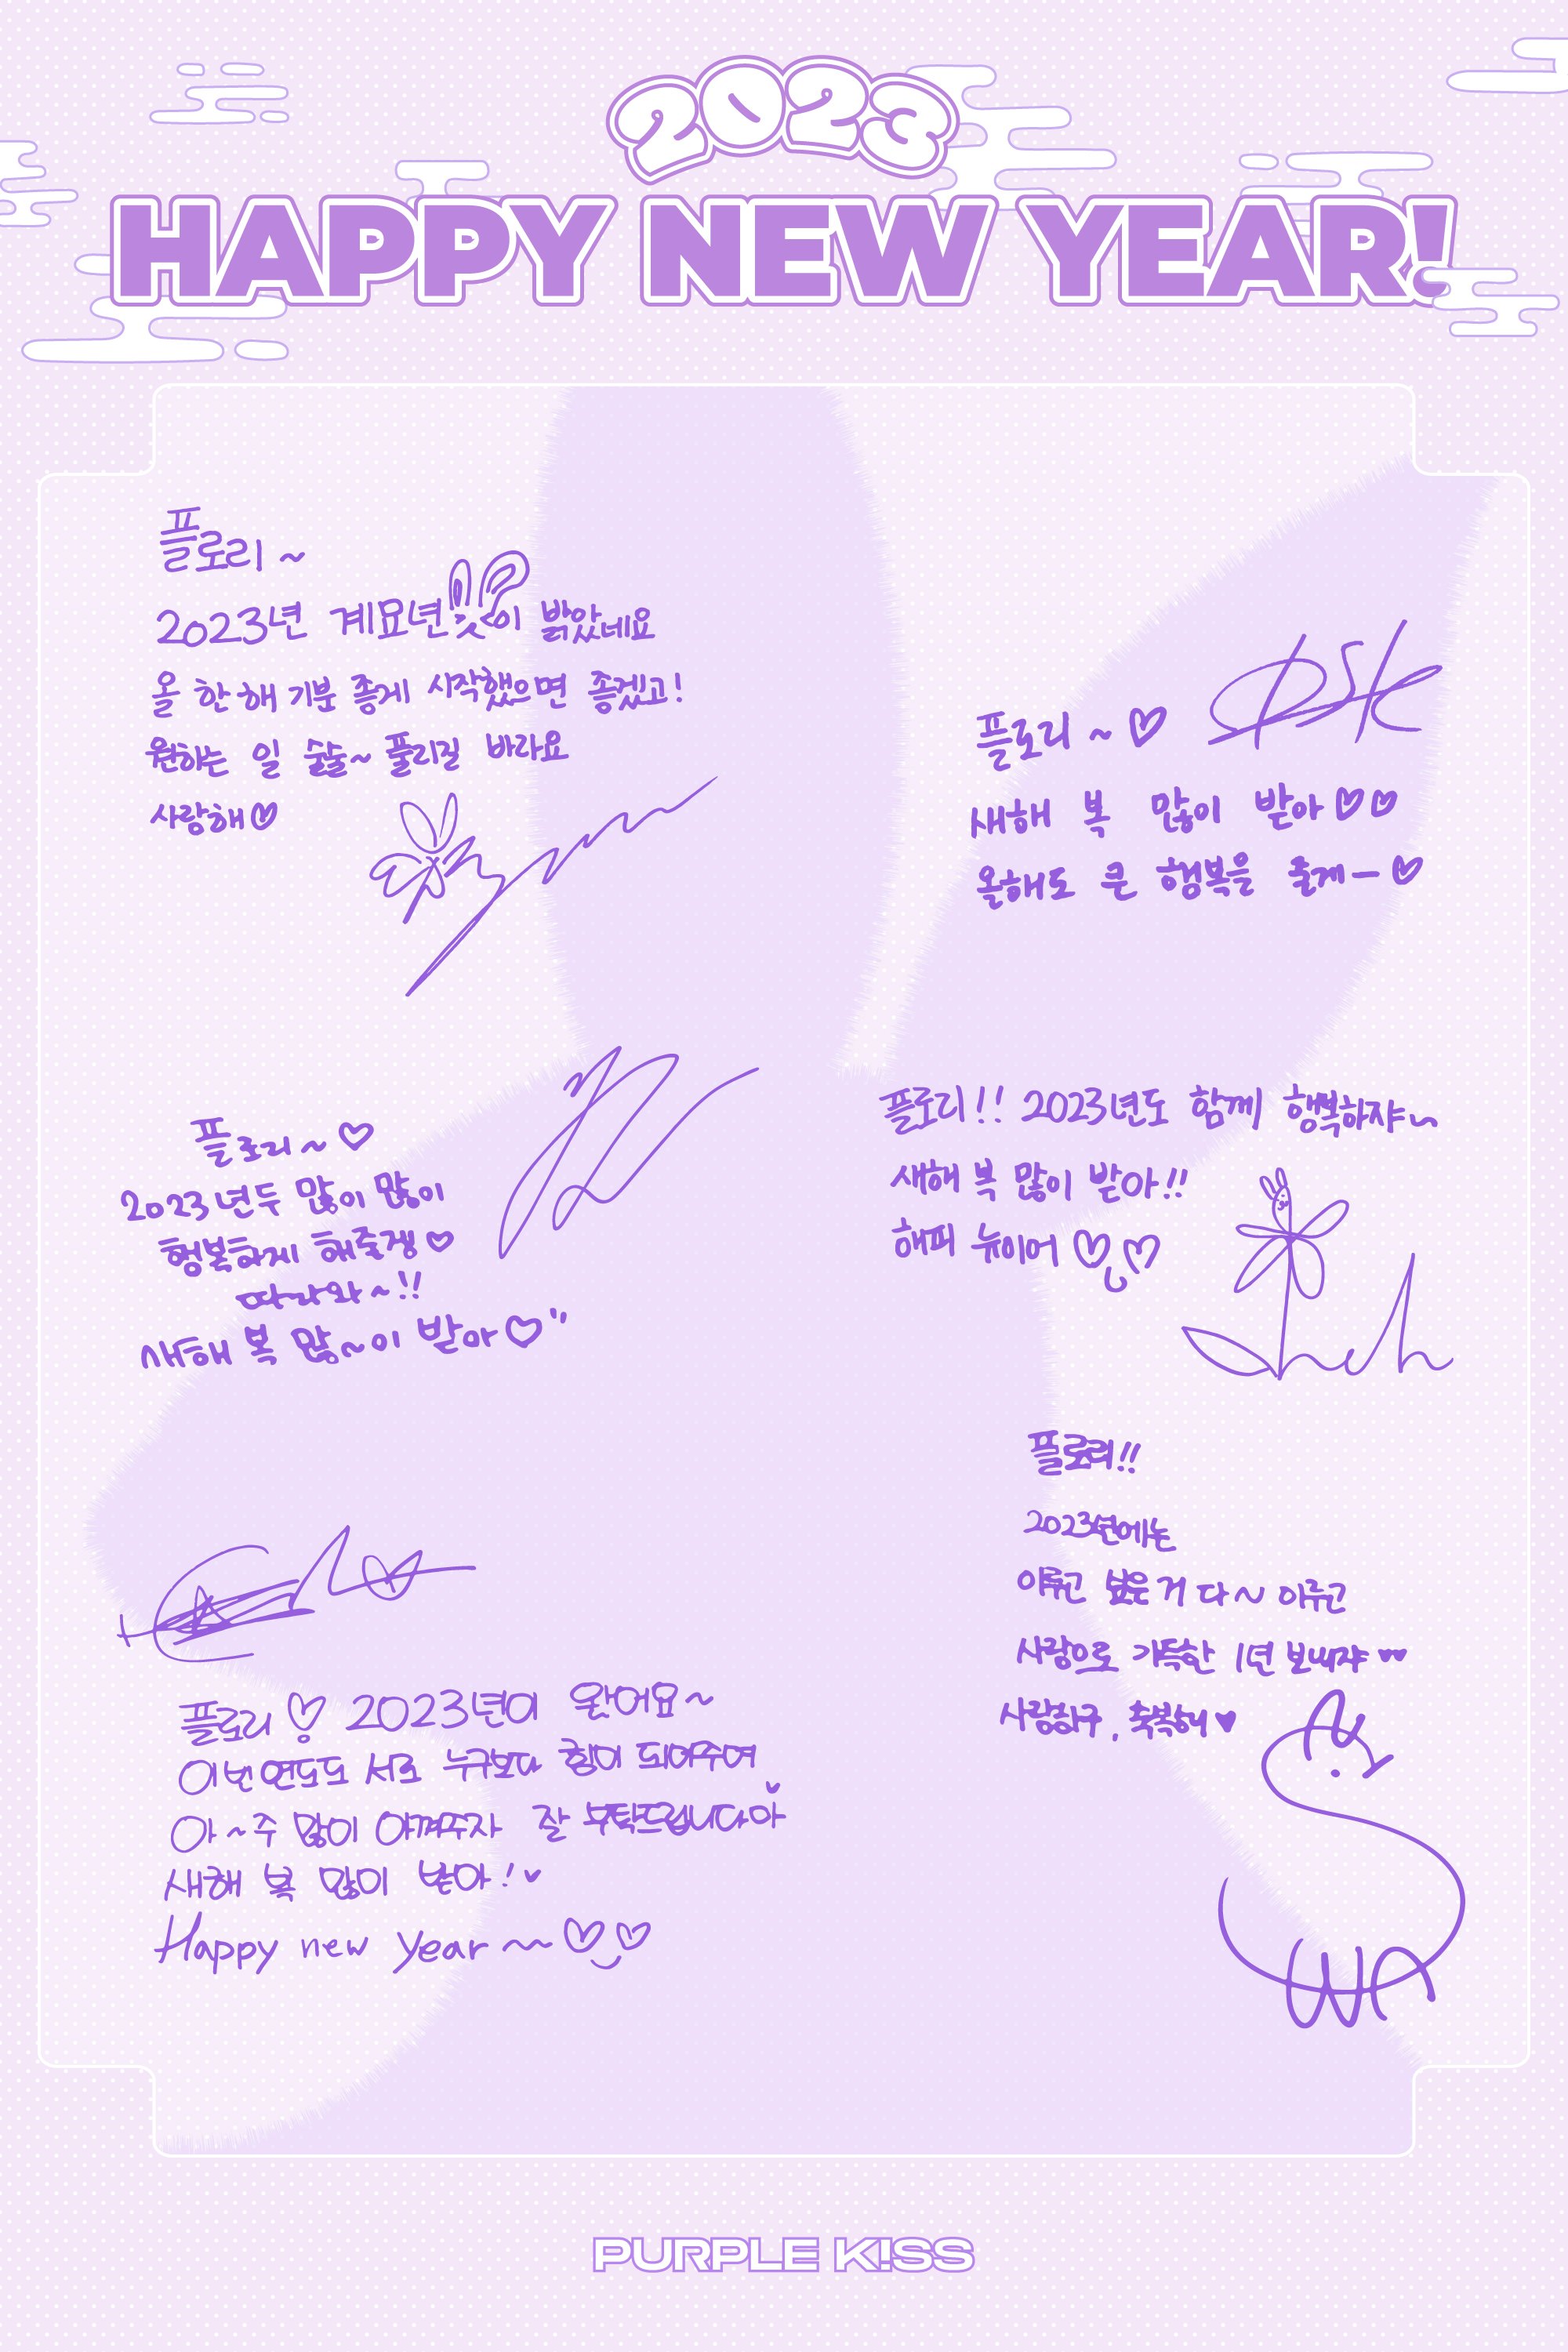 2023
HAPPY NEW YEAR!
플로리 ~
2023년 계묘년이 밝았네요
올 한 해 기분 좋게 시작했으면 좋겠고!
원하는 일 술술~ 풀리길 바라요
사랑해♡
플로리 ~ ♡
새해 복 많이 받아♡♡
올해도 큰 행복을 줄게ー♡
플로리 ~ ♡
2023년두 많이 많이
행복하게 해줄겡♡
따라와~!!
새해 복 많~이 받아♡"
플로리!! 2023년도 함께 행복하쟈~
새해 복 많이 받아!!
해피 뉴이어 ♡♡
플로리!!
2023년에는
이루고 싶은 거 다~ 이루고
사랑으로 가득한 1년 보내쟈♥♥
사랑하구, 축복해♥
플로리♡ 2023년이 왔어요~
이번 연도도 서로 누구보다 힘이 되어주며
아~주 많이 아껴주자 잘 부탁드립니다아
새해 복 많이 받아!♥
Happy new year ~♡♡
PURPLE K!SS